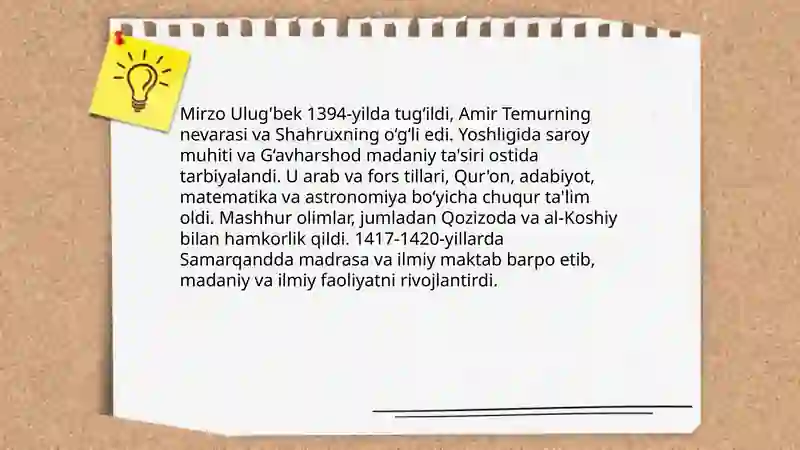 Mirzo Ulug'bek 1394-yilda tug‘ildi, Amir Temurning
nevarasi va Shahruxning o‘g‘li edi. Yoshligida saroy
muhiti va G‘avharshod madaniy ta'siri ostida
tarbiyalandi. U arab va fors tillari, Qur'on, adabiyot,
matematika va astronomiya bo‘yicha chuqur ta'lim
oldi. Mashhur olimlar, jumladan Qozizoda va al-Koshiy
bilan hamkorlik qildi. 1417-1420-yillarda
Samarqandda madrasa va ilmiy maktab barpo etib,
madaniy va ilmiy faoliyatni rivojlantirdi.